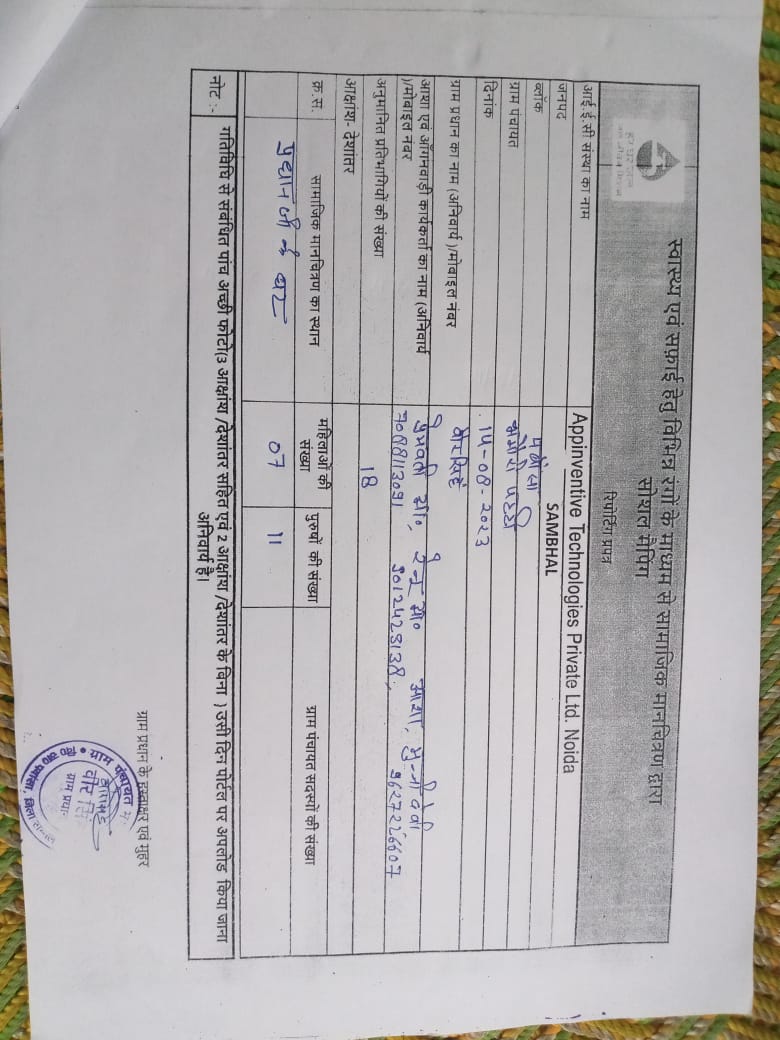 स्वास्थ्य एवं सफ़ाई हेतु विभिन्न रंगो के माध्यम से सामाजिक मानचित्रण द्वारा
सोशल मैपिंग
रिपोर्टिंग प्रपत्र
आई.ई.सी संस्था का नाम Appinventive Technologies Private Ltd. Noida
जनपद SAMBHAL
ब्लॉक
ग्राम पंचायत
दिनांक 14-08-2023
ग्राम प्रधान का नाम (अनिवार्य )/मोबाइल नंबर वीरसिंह
आशा एवं आँगनवाड़ी कार्यकर्ता का नाम (अनिवार्य
)/मोबाइल नंबर
अनुमानित प्रतिभागियों की संख्या 18
आक्षांश- देशांतर
क्र.स. सामाजिक मानचित्रण का स्थान महिलाओं की संख्या पुरुषों की संख्या ग्राम पंचायत सदस्यों की संख्या
प्रधान जी के घर 07 11
नोट :- गतिविधि से संबंधित पांच अच्छी फोटो(3 आक्षांश /देशांतर सहित एवं 2 आक्षांश /देशांतर के बिना ) उसी दिन पोर्टल पर अपलोड किया जाना
अनिवार्य है।
ग्राम प्रधान के हस्ताक्षर एवं मुहर
ग्राम पंचायत